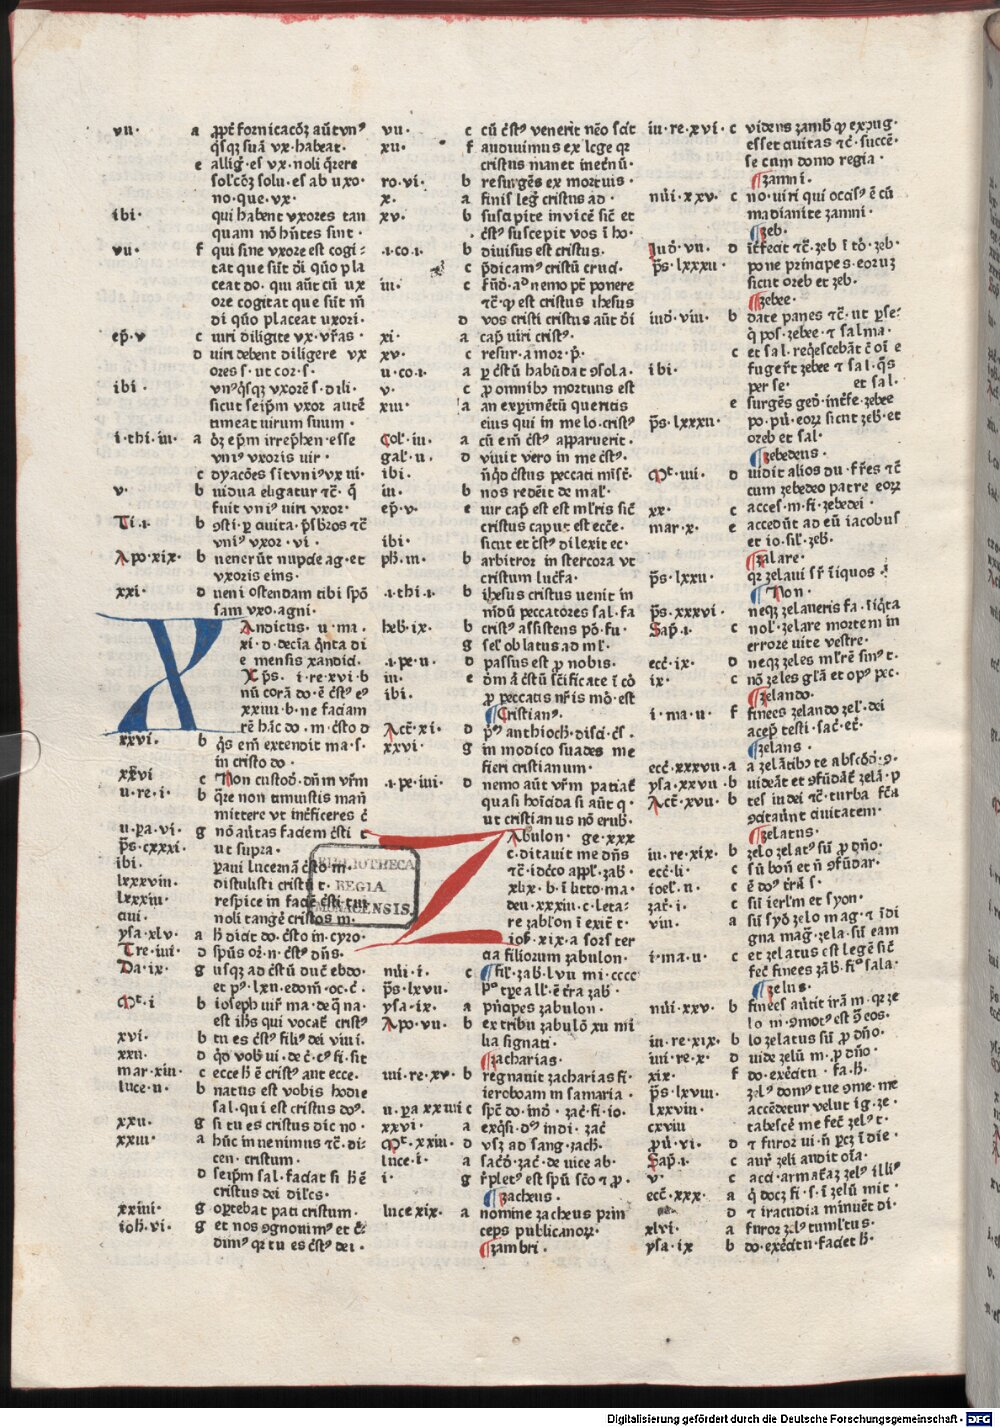 vii· a ꝓpt̄ fornicacōꝫ aūt vnꝰ
q̄sqꝫ suā vx·habeat·
e alliḡ·es vx·noli q̄rere
sol'cōꝫ solu·es ab uxo·
no·que·vx·
ibi· qui habent vxores tan
quam nō hn̄tes sint·
vii· f qui sine vxore est cogi⸗
tat que sūt d̄i quō pla
ceat do· qui aūt cū ux
ore cogitat que sūt m̄
di quō placeat uxori·
ep̄·v c uiri diligite vx·vr̄as·
d uiri debent diligere vx
ores s·ut cor·s·
ibi· vnꝰq̄sqꝫ vxorē s·dili·
sicut seip̄m vxor autē
timeat uirum suum·
i·thi·iii· a ep̄m irrep̄hen·esse
vniꝰ vxoris uir·
c dyacōes sit vniꝰvx ui·
v· b uidua eligatur tc̄· q̄
fuit vniꝰ uiri vxor·
Ti·i· b
vniꝰ vxor·vi·
Apo·xix· b uenerūt nupcie ag·et
vxoris eius·
xxi· d ueni ostendam tibi spō
sam vxo·agni·
XAndicus· u·ma·
xi·d·decīa q̄nta di
e mensis xandici·
Xp̄s· i·re·xvi·b
nū corā do·ē c̄stꝰ eꝰ
xxiiii·b·ne faciam
rē hāc do·m·c̄sto d
xxvi· b q̄s em̄ extendit ma·s·
in cristo do·
xxvi c Non custod'·dn̄m vr̄m
u·re·i· b q̄re non timuistis man̄
mittere vt int̄ficeres c̄
u·pa·vi· g nō aūtas faciem c̄sti t
ps̄·cxxxi· ut supra·
ibi· ꝑaui lucernā c̄sto m·
lxxxviii· distulisti cristū t·
lxxxiii· respice in faciē c̄sti tui
ciiii· noli tangē cristos m·
ysa·xlv· a h̄ dicit do·c̄sto m·cyro·
Tre·iiii· d spūs or·n·c̄stꝰ dn̄s·
Da·ix· g usqꝫ ad c̄stū ducē ebdo·
et pꝰ·lxii·edom̄·oc·c̄·
Mt̄·i b ioseph uir̄ ma·de q̄ na·
est ih̄s qui vocat̄ cristꝰ
xvi· b tu es c̄stꝰ filiꝰ dei viui·
xxii· d q̄d vob̄ ui·de c̄·cꝰ fi·sit
mar·xiii· c ecce h̄ ē cristꝰ aut ecce·
luce·ii· b natus est vobis hodie
sal·qui est cristus doꝰ·
xxii· g si tu es cristus dic no·
xxiii· a hūc inuenimus tc̄·di·
cen·cristum·
d seip̄m sal·faciat si h̄ ē
cristus dei dil'cs·
xxiiii· g optebat pati cristum·
ioh̄·vi· g et nos ꝯgnouimꝰ et c̄
dimꝰ qr tu es c̄stꝰ dei·
vii· c cū c̄stꝰ venerit nēo scit
xii· f audiuimus ex lege qꝛ
cristus manet inet̄nū·
ro·vi· b resurgēs ex mortuis·
x· a finis leḡ cristus ad·
xv· b suscipite inuicē sic̄ et
c̄stꝰ suscepit vos ī ho·
·i·co·i· b diuisus est cristus·
c p̄dicamꝰ cristū cruci·
iii· c fūd̄·aᵈ nemo pt̄ ponere
tc̄·ꝙ est cristus ihesus
d vos cristi cristus aūt d̄i
xi· a cap̄ uiri cristꝰ·
xv· c resur·a mor·p̄·
u·co·i· a ꝑ c̄stū habūdat ꝯsola·
v· c ꝓ omnibꝫ mortuus est
xiii· a an experimētū queritis
eius qui in me lo·cristꝰ
Col'·iii· a cū em̄ c̄stꝰ apparuerit·
gal'·ii· d viuit vero in me c̄stꝰ·
ibi· nūqd c̄stus peccati mīst̄·
iii· b nos redēit de mal'·
ep̄·v· e uir cap̄ est est ml'ris sic̄
cristus caput est ecc̄e·
ibi· sicut et c̄stꝰ dilexit ec·
ph̄·iii· b arbitror in stercora vt
cristum luc̄fa·
·i·thi·i· b ihesus cristus uenit in
mūdū peccatores sal·fa
heb̄·ix· b cristꝰ assistens pō·fu·
g sel' oblatus ad ml'·
·i·pe·ii· d passus est ꝓ nobis·
iii· e dm̄ a c̄stū scificate ī cō
ibi· ꝓ peccatis nr̄is mō·est
Cristianꝰ·
Act̄·xi· d pꝰ anthioch̄·disci·c̄s·
xxvi· g in modico suades me
fieri cristianum·
·i·pe·iiii· d nemo aūt vr̄m patiat̄
quasi ho ī cida si aūt q·
ut cristianus nō erub̄·
ZAbulon ge·xxx
c·ditauit me dn̄s
tc̄·idcco app̄l'·zab̄·
xlix·b·ī litto·ma·
deu·xxxiii·c·leta·
re zabl'on ī exit̄ t·
ios̄·xix·a sors ter
cia filiorum zabulon·
nūi·i· c fil'·zab̄·lvii mi·cccc
ps̄·lxvii· zab̄·
ysa·ix· a pn̄cipes zabulon·
Apo·vii· b ex tribu zabulō xii mi
lia signati·
zacharias·
iiii·re·xv· b regnauit zacharias fi·
ieroboam in samaria·
u·pa xxiiii c sp̄c do·ind̄·zac̄ fi·io·
xxvi· a exq̄si·dꝰ in di·zac̄
Mt̄·xxiii· d vsꝫ ad sang·zach̄·
luce·i· a sac̄d̄·zac̄·de uice ab·
i· g r̄pletꝰ est spū sc̄o t ꝓ·
zacheus·
luce xix· a nomine zacheus prin
ceps publicanoꝝ·
zambri·
iii·re·xvi· c videns zamb̄ ꝙ expug·
esset ciuitas tc̄·succē·
se cum domo regia·
zamni·
nūi·xxv· c no·uiri qui occisꝰ ē cū
madianite zamni·
zeb·
Iud̄·vii· d int̄fecit tc̄·zeb ī tō·zeb·
ps̄·lxxxii· pone principes eoruꝫ
sicut oreb et zeb·
zebee·
iud̄·viii· b date panes tc̄·ut ꝑse⸗
q̄ pos·zebee·t salma·
c et sal·reqēscebāt c̄ oī e
ibi· fuger̄t zebee t sal·q̄s
per se· et sal·
e surgēs ged̄·int̄fe·zebee
ps̄·lxxxii· po·pū·eoꝝ sicut zeb̄·et
oreb et sal·
zebedeus·
Mt̄·iiii· d uidit alios du·fr̄es tc̄
cum zebedeo patre eoꝝ
xx· c acces·m·fi·zebedei·
mar·x· e accedūt ad eū iacobus
et io·fil'·zeb̄·
zalare·
ps̄·lxxii· qꝛ zelaui sr̄ īiquos·
Non·
ps̄·xxxvi· neqꝫ zelaueris fa·īiq̄ta
Sap̄·i· c nol'·zelare mortem in
errore uite vestre·
ecc̄·ix· d neqꝫ zeles ml'rē sinꝰ t·
ix· c nō zeles gl'ā et opꝰ pec·
zelando·
i·ma·ii· f finees zelando zel'·dei
acep̄ testi·sac̄·et̄·
zelans·
ecc̄·xxxvii·a a zelātibꝫ te absc̄d̄·ꝯ·
ysa·xxvii·b uideāt et ꝯfūdāt̄ zelā·p
Act̄·xvii·b tes indei tc̄·turba fc̄a
ꝯcitaūnt ciuitatem·
zelatus·
iii·re·xix· b zelo zelatꝰ sū ꝓ dn̄o·
ecc̄·li· c sū bon̄ et n̄ ꝯfūdar·
ioel'·ii· c ē doꝰ t̄rā s·
zac̄·i· c sū ier̄lm et syon·
viii· a sū syō zelo mag·t īdi
gna mag·zela·sū eam
i·ma·ii· c et zelatus est legē sic̄
fec̄ finees zāb̄·fiꝰ sala·
zelus·
nūi·xxv· b finees aūtit irā m·qꝛ ze
lo m·ꝯmotꝰ est ꝯ eos·
iii·re·xix· b lo zelatus sū ꝓ dn̄o·
iiii·re·x· d uide zelū m·ꝓ dn̄o·
xix· f do·exēcitū·fa·h̄·
ps̄·lxviii· zelꝰ domꝰ tue ꝯme·me
lxxviii· accēdetur velut ig·ze·
cxviii tabescē me fec̄ zelꝰ t·
ꝓū·vi· d t furor ui·n̄ pcꝫ ī die·
Sap̄·i· c aur̄ zeli audit oīa·
v· c acci·armat̄aꝫ zelꝰ illiꝰ
ecc̄·xxx· a q̄ docꝫ fi·s·ī zelū mit·
d t iracudia minuēt di·
xlvi· a furor zelꝰ tumltus·
ysa·ix b do·exēcitū·faciet h̄·
BIBLIOTHECA
REGIA
MONACENSIS.
Digitalisierung gefördert durch die Deutsche Forschungsgemeinschaft · DFG